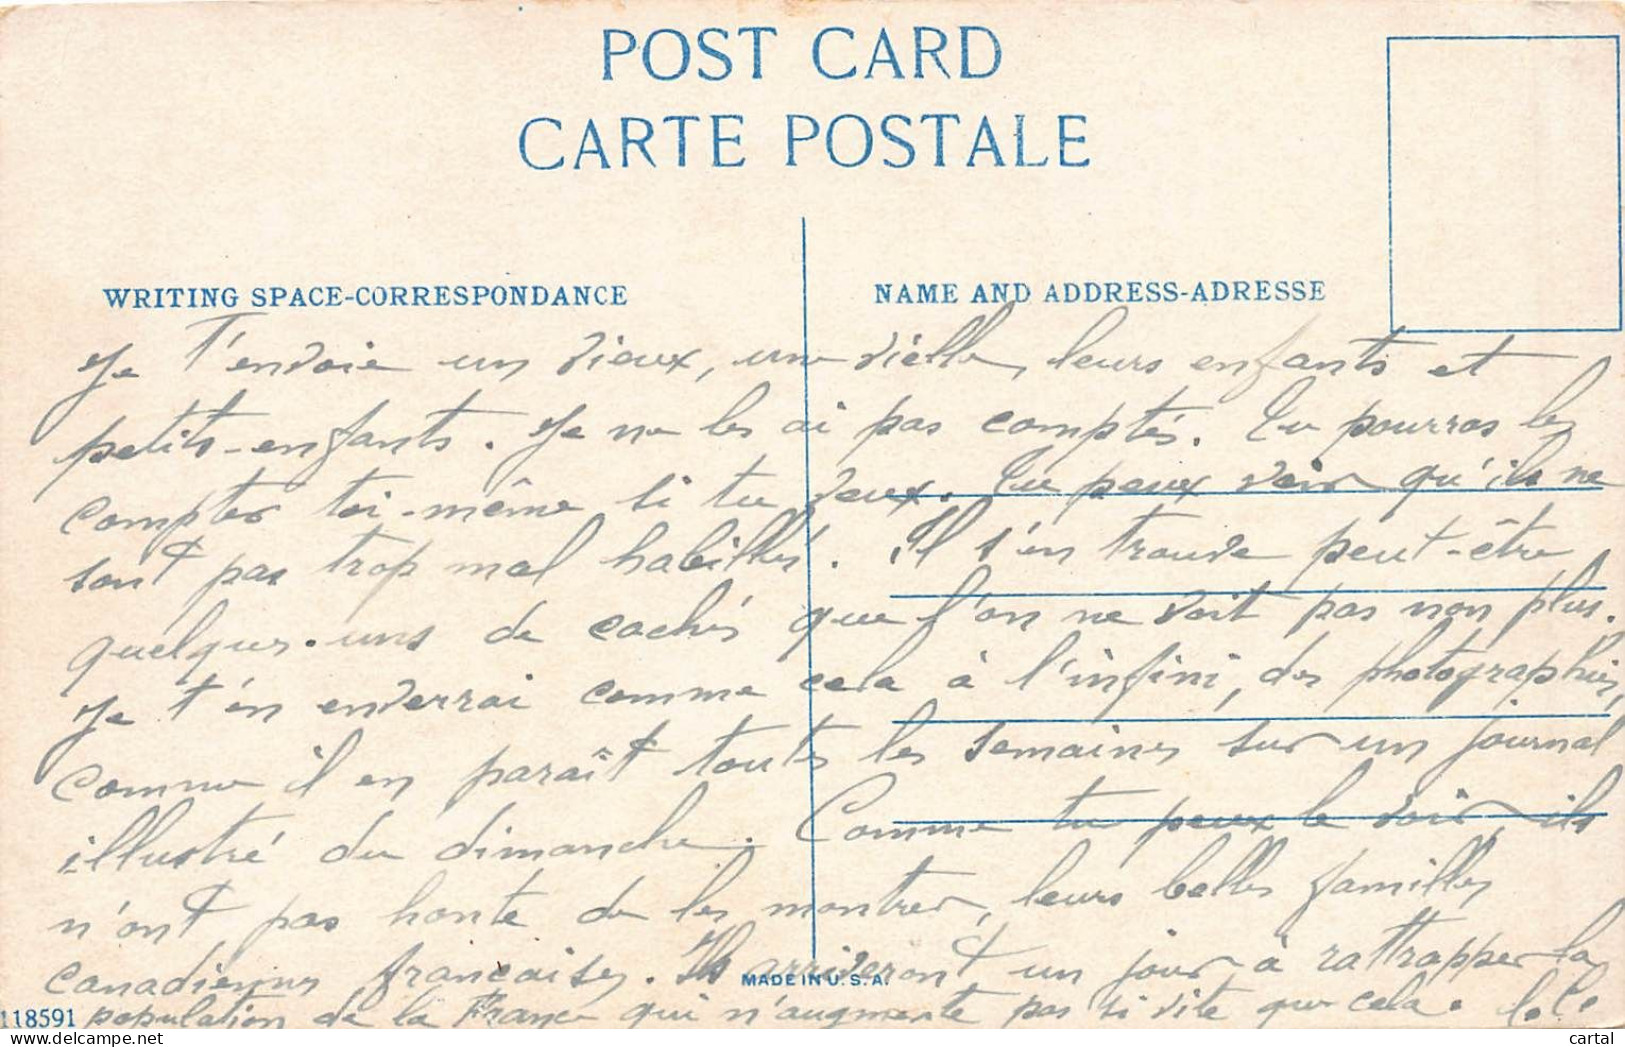 POST CARD
CARTE POSTALE
WRITING SPACE-CORRESPONDANCE
NAME AND ADDRESS-ADRESSE
Je t'envoie un vieux, une vielle, leurs enfants et
petits-enfants. Je ne les ai pas comptés. Tu pourras les
compter toi-même si tu veux. Tu peux voir qu'ils ne
sont pas trop mal habillés. Il s'en trouve peut-être
quelques-uns de cachés que l'on ne voit pas non plus.
Je t'en enverrai comme cela à l'infini, des photographies,
comme il en paraît toutes les semaines sur un journal
illustré du dimanche. Comme tu peux le voir, ils
n'ont pas honte de les montrer, leurs belles familles
canadiennes françaises. Ils arriveront un jour à rattrapper la
population de la France qui n'augmente pas si vite que cela.
MADE IN U.S.A.
118591
delcampe.net
cartal